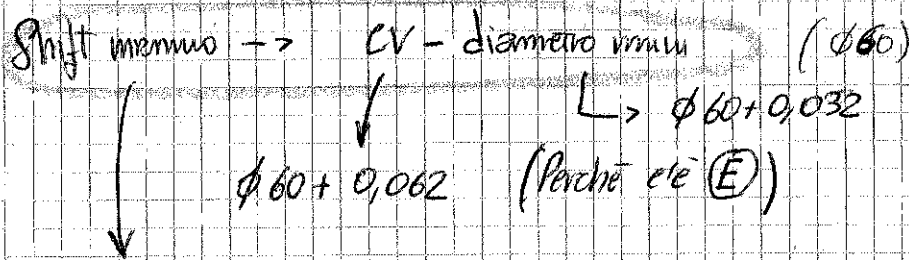 Shift minimo -> CV - diametro minimo (ϕ60)
ϕ60 + 0,032
ϕ60 + 0,062 (Perchè c'è Ⓔ)